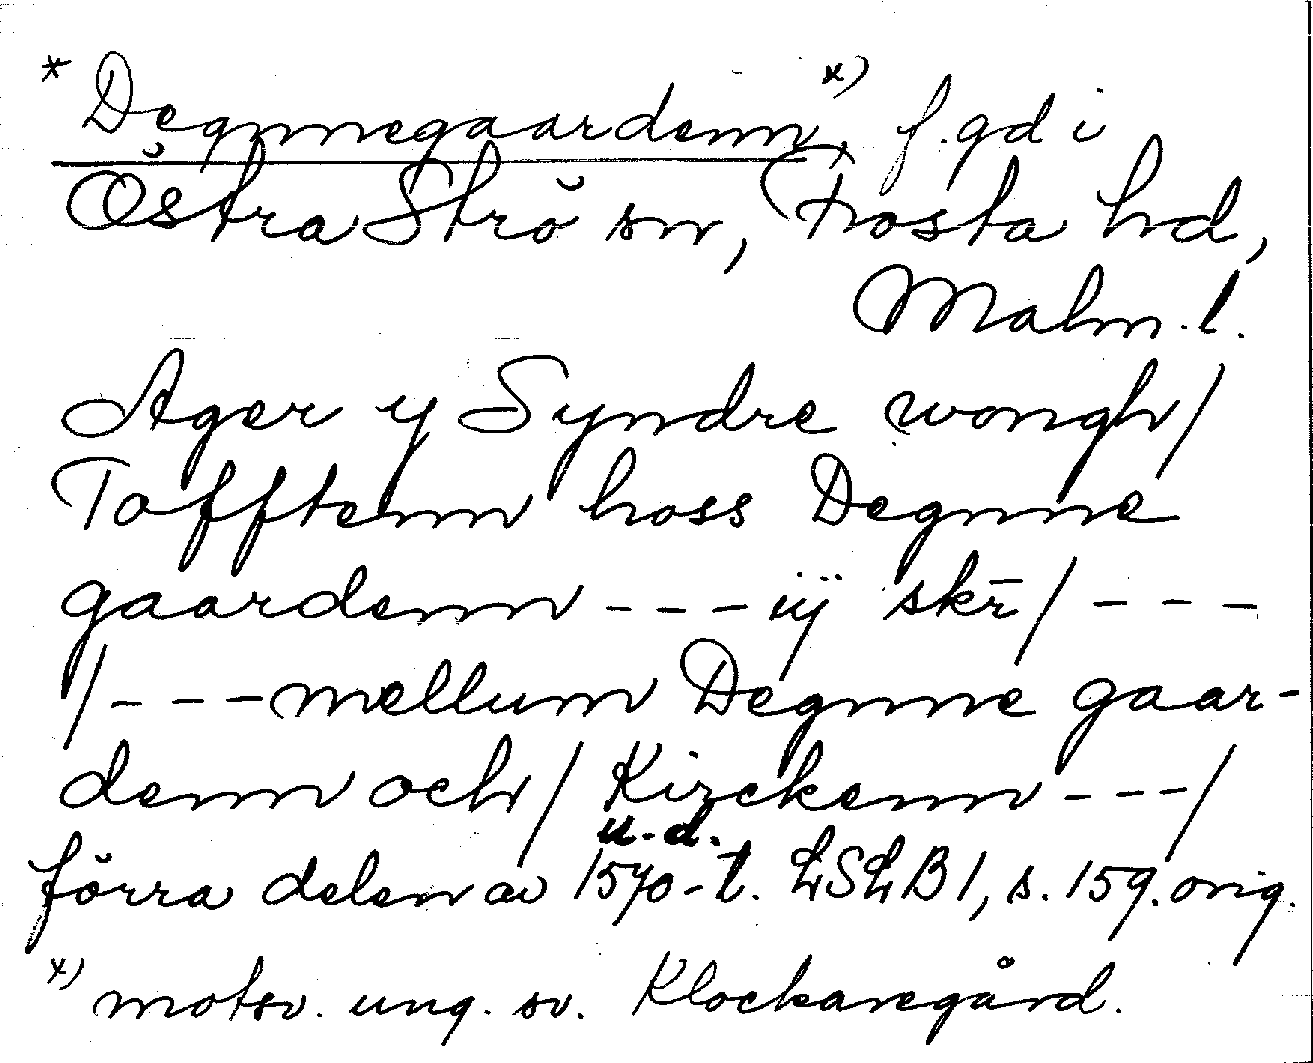 * Degnnegaardenn, x) f.gd i
Östra Strö sn, Frosta hd,
Malm. l.
Ager y Syndre wongh/
Tofftenn hoss Degnne
gaardenn --- ij skr̄/ ---
/--- mellum Degnne gaar-
denn och/ Kirckenn ---/
u.d.
förra delen av 1570-t. LSLB 1, s. 159. orig.
x) motsv. ung. sv. Klockaregård.